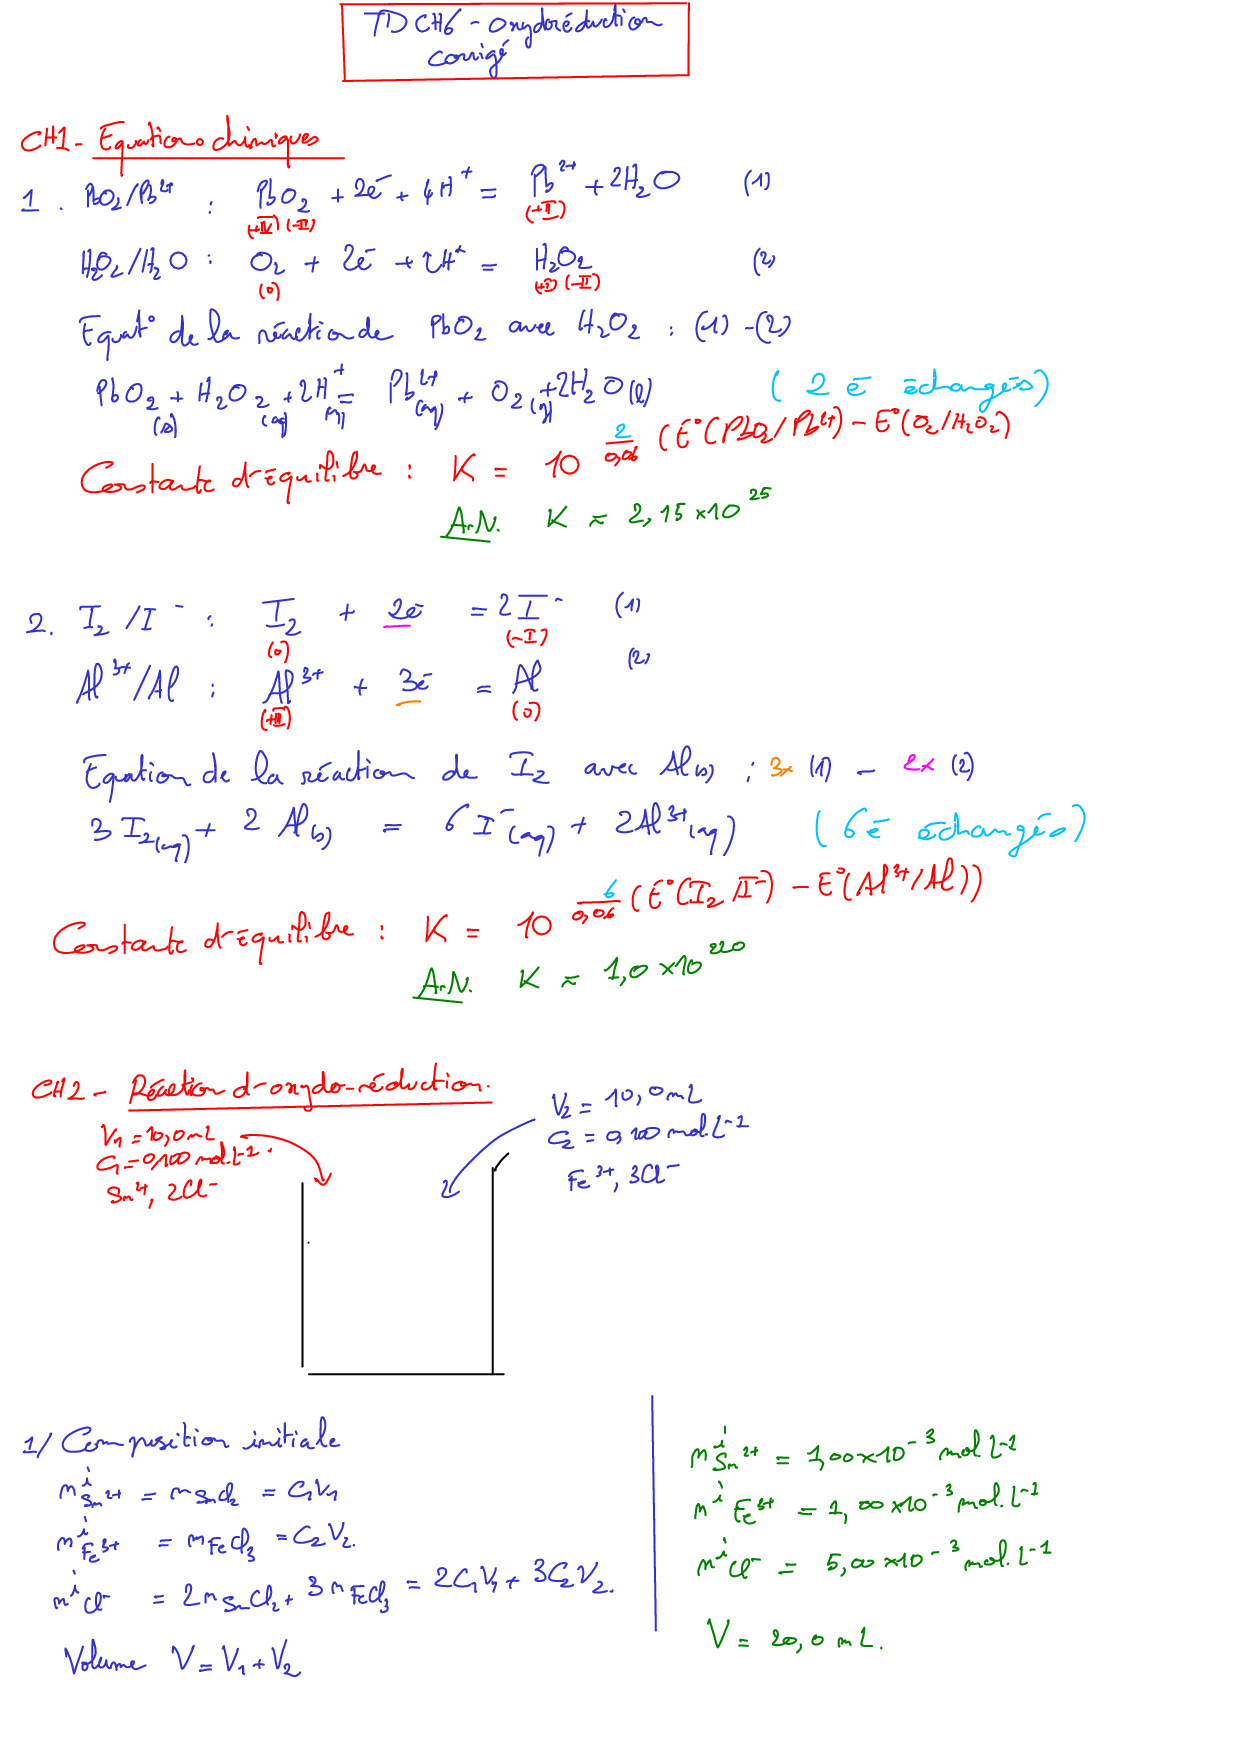 TD CH6 - Oxydoréduction
corrigé
CH1 - Equations chimiques
1. PbO₂/Pb²⁺ : PbO₂ + 2e⁻ + 4H⁺ = Pb²⁺ + 2H₂O (1)
(+IV) (-II) (+II)
H₂O₂/H₂O : O₂ + 2e⁻ + 2H⁺ = H₂O₂ (2)
(0) (+I) (-II)
Equat° de la réaction de PbO₂ avec H₂O₂ : (1) - (2)
PbO₂(s) + H₂O₂(aq) + 2H⁺(aq) = Pb²⁺(aq) + O₂(g) + 2H₂O(l) (2 e⁻ échangés)
Constante d'équilibre : K = 10^(2/0,06 (E°(PbO₂/Pb²⁺) - E°(O₂/H₂O₂)
A.N. K ≈ 2,15×10²⁵
2. I₂/I⁻ : I₂ + 2e⁻ = 2I⁻ (1)
(0) (-I)
Al³⁺/Al : Al³⁺ + 3e⁻ = Al (2)
(+III) (0)
Equation de la réaction de I₂ avec Al(s) : 3× (1) - 2× (2)
3 I₂(aq) + 2 Al(s) = 6 I⁻(aq) + 2Al³⁺(aq) (6 e⁻ échangés)
Constante d'équilibre : K = 10^(6/0,06 (E°(I₂/I⁻) - E°(Al³⁺/Al))
A.N. K ≈ 1,0×10²²⁰
CH2 - Réaction d'oxydo-réduction.
V₁ = 10,0 mL
C₁ = 0,100 mol.L⁻¹.
Sn²⁺, 2Cl⁻
V₂ = 10,0 mL
C₂ = 0,100 mol.L⁻¹
Fe³⁺, 3Cl⁻
1/ Composition initiale
nⁱSn²⁺ = nSnCl₂ = C₁V₁
nⁱFe³⁺ = nFeCl₃ = C₂V₂.
nⁱCl⁻ = 2nSnCl₂ + 3nFeCl₃ = 2C₁V₁ + 3C₂V₂.
Volume V = V₁ + V₂
nⁱSn²⁺ = 1,00×10⁻³ mol.L⁻¹
nⁱFe³⁺ = 1,00×10⁻³ mol.L⁻¹
nⁱCl⁻ = 5,00×10⁻³ mol.L⁻¹
V = 20,0 mL.